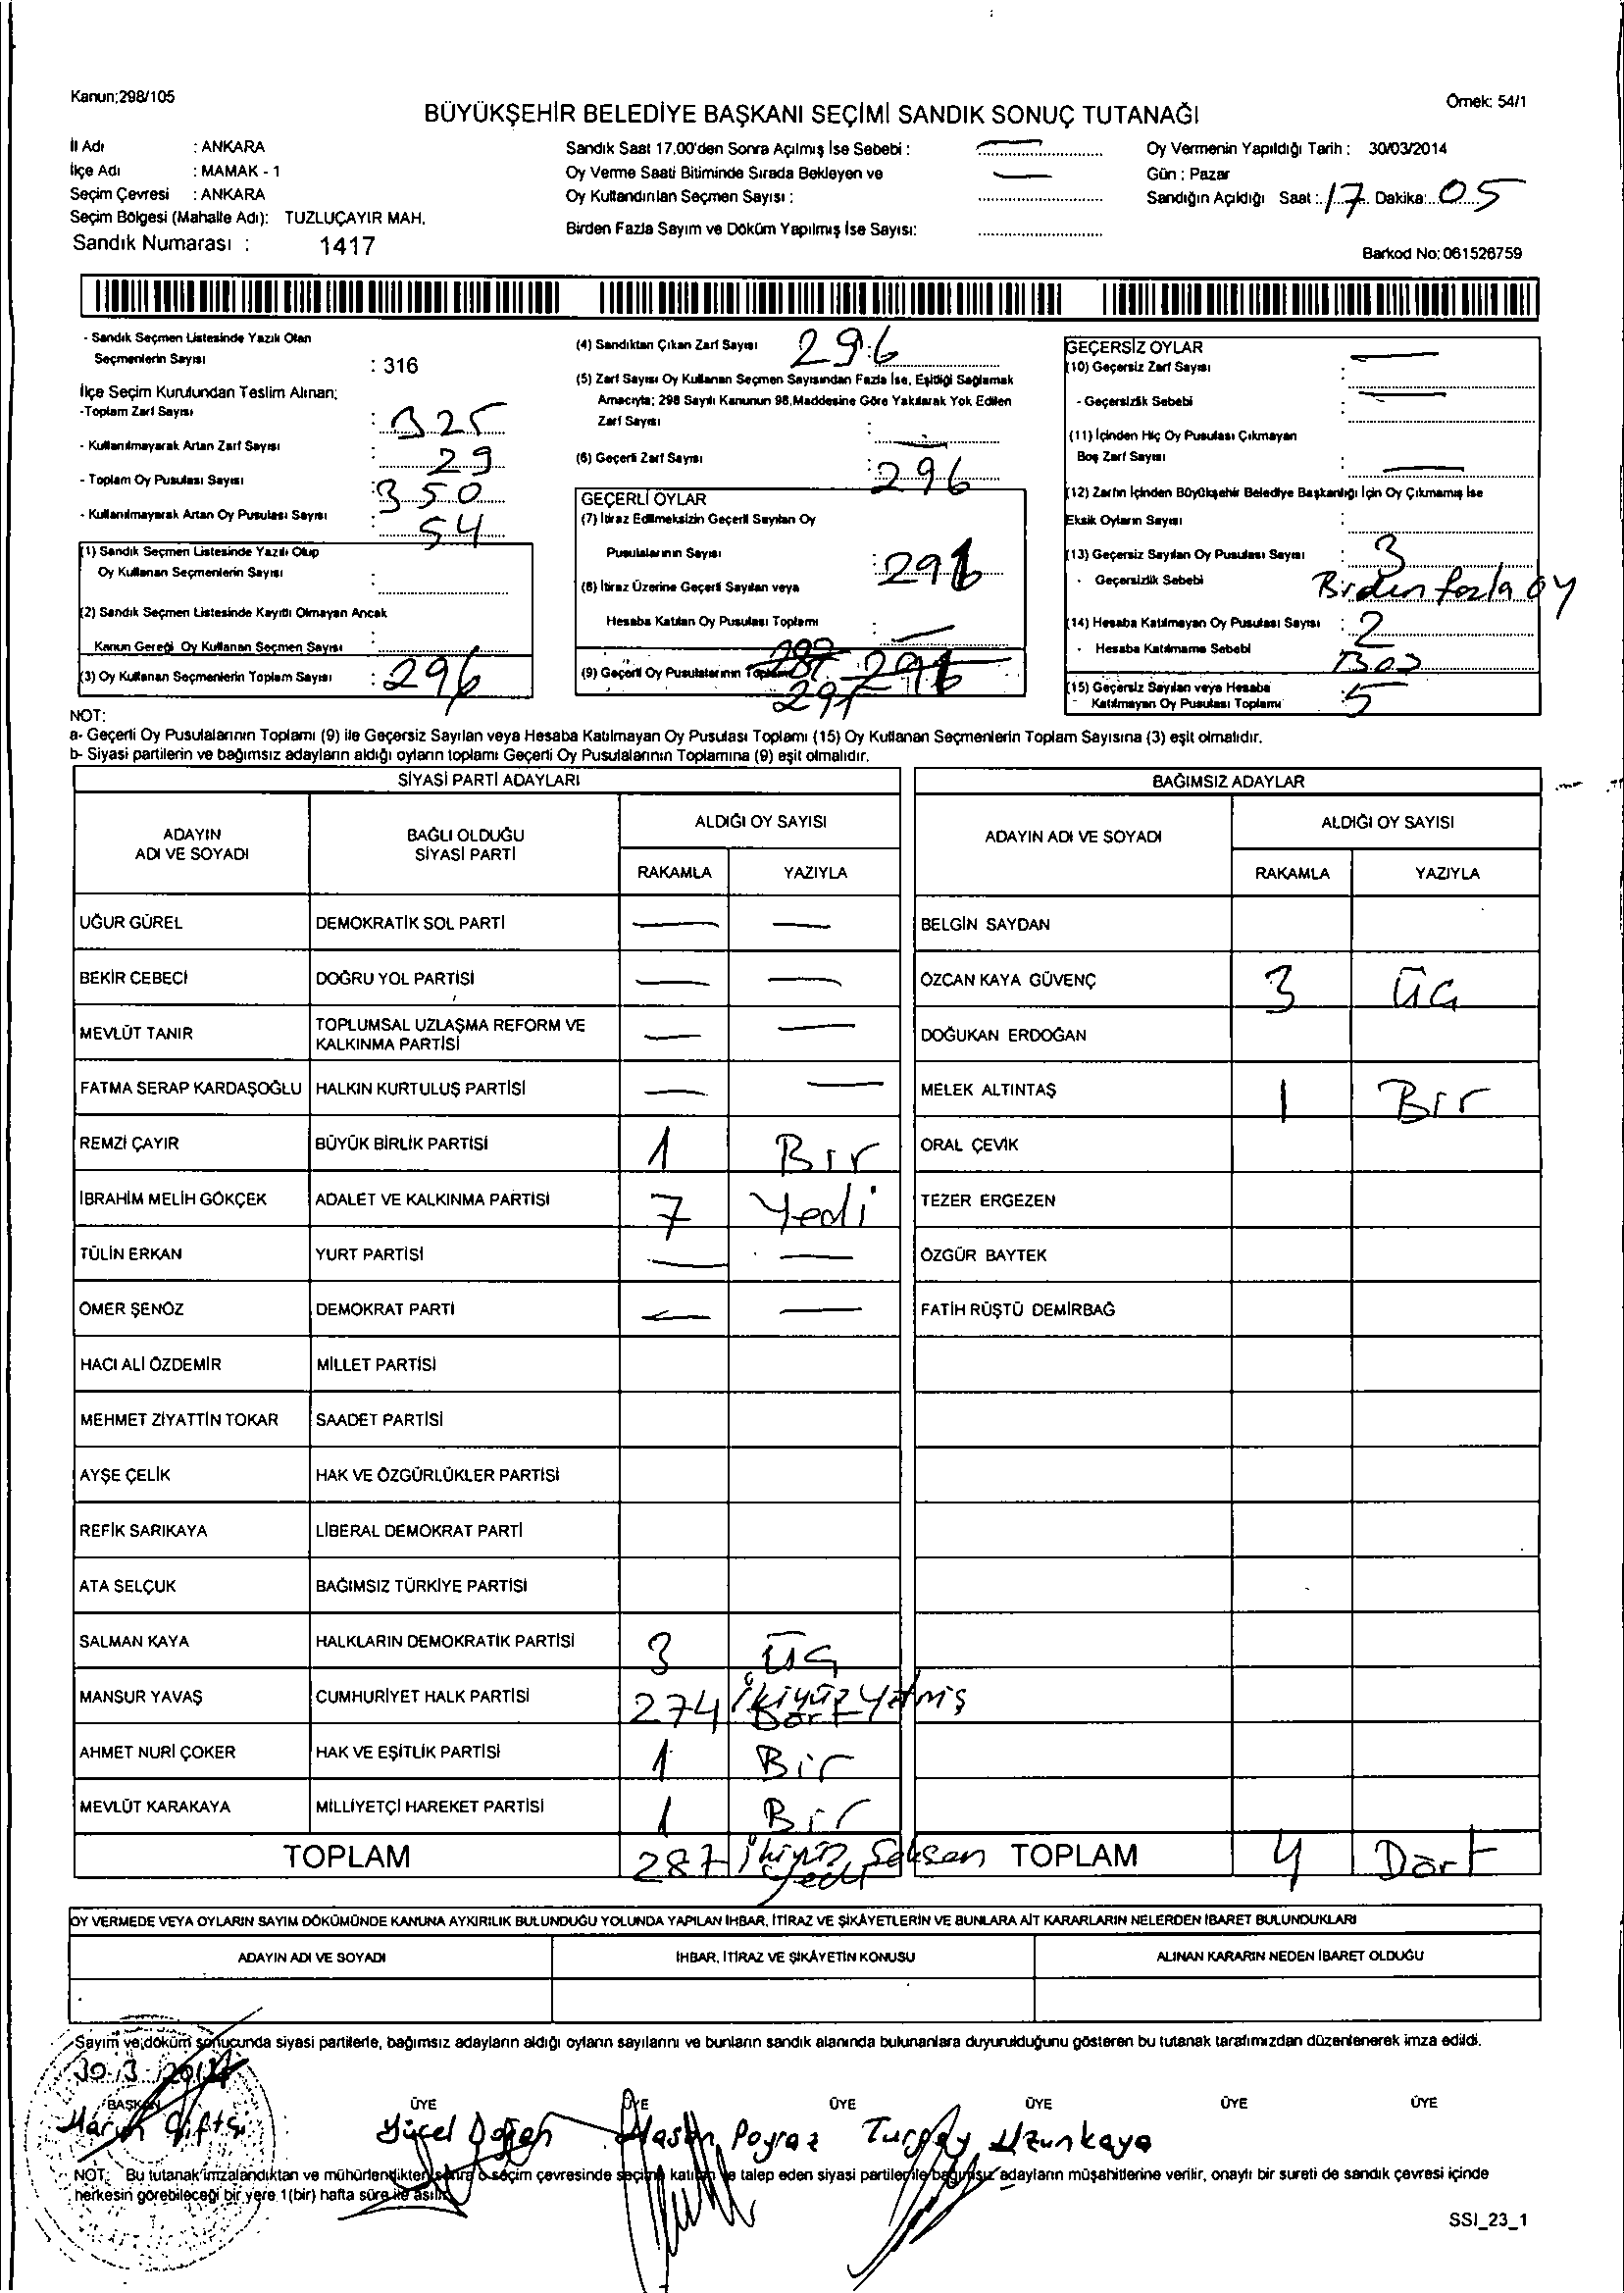 Kanun;298/105
Örnek: 54/1
BÜYÜKŞEHİR BELEDİYE BAŞKANI SEÇİMİ SANDIK SONUÇ TUTANAĞI
İl Adı : ANKARA
İlçe Adı : MAMAK - 1
Seçim Çevresi : ANKARA
Seçim Bölgesi (Mahalle Adı): TUZLUÇAYIR MAH.
Sandık Numarası : 1417
Sandık Saat 17.00'den Sonra Açılmış İse Sebebi :
Oy Verme Saati Bitiminde Sırada Bekleyen ve
Oy Kullandırılan Seçmen Sayısı :
Birden Fazla Sayım ve Döküm Yapılmış İse Sayısı:
Oy Vermenin Yapıldığı Tarih : 30/03/2014
Gün : Pazar
Sandığın Açıldığı Saat : 17 Dakika: 05
Barkod No: 061526759
- Sandık Seçmen Listesinde Yazılı Olan
Seçmenlerin Sayısı : 316
İlçe Seçim Kurulundan Teslim Alınan;
-Toplam Zarf Sayısı : 325
- Kullanılmayarak Artan Zarf Sayısı : 29
- Toplam Oy Pusulası Sayısı : 350
- Kullanılmayarak Artan Oy Pusulası Sayısı : 54
(1) Sandık Seçmen Listesinde Yazılı Olup
Oy Kullanan Seçmenlerin Sayısı :
(2) Sandık Seçmen Listesinde Kayıtlı Olmayan Ancak
Kanun Gereği Oy Kullanan Seçmen Sayısı :
(3) Oy Kullanan Seçmenlerin Toplam Sayısı : 296
(4) Sandıktan Çıkan Zarf Sayısı 296
(5) Zarf Sayısı Oy Kullanan Seçmen Sayısından Fazla İse, Eşitliği Sağlamak
Amacıyla; 298 Sayılı Kanunun 98.Maddesine Göre Yakılarak Yok Edilen
Zarf Sayısı : -
(6) Geçerli Zarf Sayısı : 296
GEÇERLİ OYLAR
(7) İtiraz Edilmeksizin Geçerli Sayılan Oy
Pusulalarının Sayısı : 291
(8) İtiraz Üzerine Geçerli Sayılan veya
Hesaba Katılan Oy Pusulası Toplamı : -
(9) Geçerli Oy Pusulalarının Toplamı 291
GEÇERSİZ OYLAR
(10) Geçersiz Zarf Sayısı :
- Geçersizlik Sebebi :
(11) İçinden Hiç Oy Pusulası Çıkmayan
Boş Zarf Sayısı :
(12) Zarfın İçinden Büyükşehir Belediye Başkanlığı İçin Oy Çıkmamış İse
Eksik Oyların Sayısı :
(13) Geçersiz Sayılan Oy Pusulası Sayısı : 3
- Geçersizlik Sebebi Birden fazla oy
(14) Hesaba Katılmayan Oy Pusulası Sayısı : 2
- Hesaba Katılmama Sebebi Boş
(15) Geçersiz Sayılan veya Hesaba
Katılmayan Oy Pusulası Toplamı : 5
NOT:
a- Geçerli Oy Pusulalarının Toplamı (9) ile Geçersiz Sayılan veya Hesaba Katılmayan Oy Pusulası Toplamı (15) Oy Kullanan Seçmenlerin Toplam Sayısına (3) eşit olmalıdır.
b- Siyasi partilerin ve bağımsız adayların aldığı oyların toplamı Geçerli Oy Pusulalarının Toplamına (9) eşit olmalıdır.
SİYASİ PARTİ ADAYLARI
ADAYIN ADI VE SOYADI
BAĞLI OLDUĞU SİYASİ PARTİ
ALDIĞI OY SAYISI
RAKAMLA YAZIYLA
UĞUR GÜREL DEMOKRATİK SOL PARTİ
BEKİR CEBECİ DOĞRU YOL PARTİSİ
MEVLÜT TANIR TOPLUMSAL UZLAŞMA REFORM VE
KALKINMA PARTİSİ
FATMA SERAP KARDAŞOĞLU HALKIN KURTULUŞ PARTİSİ
REMZİ ÇAYIR BÜYÜK BİRLİK PARTİSİ 1 Bir
İBRAHİM MELİH GÖKÇEK ADALET VE KALKINMA PARTİSİ 7 Yedi
TÜLİN ERKAN YURT PARTİSİ
ÖMER ŞENÖZ DEMOKRAT PARTİ
HACI ALİ ÖZDEMİR MİLLET PARTİSİ
MEHMET ZİYATTİN TOKAR SAADET PARTİSİ
AYŞE ÇELİK HAK VE ÖZGÜRLÜKLER PARTİSİ
REFİK SARIKAYA LİBERAL DEMOKRAT PARTİ
ATA SELÇUK BAĞIMSIZ TÜRKİYE PARTİSİ
SALMAN KAYA HALKLARIN DEMOKRATİK PARTİSİ 3 ÜÇ
MANSUR YAVAŞ CUMHURİYET HALK PARTİSİ 274 İkiyüz Yetmiş
Dört
AHMET NURİ ÇOKER HAK VE EŞİTLİK PARTİSİ 1 Bir
MEVLÜT KARAKAYA MİLLİYETÇİ HAREKET PARTİSİ 1 Bir
TOPLAM 287 İkiyüz Seksen
Yedi
BAĞIMSIZ ADAYLAR
ADAYIN ADI VE SOYADI
ALDIĞI OY SAYISI
RAKAMLA YAZIYLA
BELGİN SAYDAN
ÖZCAN KAYA GÜVENÇ 3 ÜÇ
DOĞUKAN ERDOĞAN
MELEK ALTINTAŞ 1 Bir
ORAL ÇEVİK
TEZER ERGEZEN
ÖZGÜR BAYTEK
FATİH RÜŞTÜ DEMİRBAĞ
TOPLAM 4 Dört
OY VERMEDE VEYA OYLARIN SAYIM DÖKÜMÜNDE KANUNA AYKIRILIK BULUNDUĞU YOLUNDA YAPILAN İHBAR, İTİRAZ VE ŞİKÂYETLERİN VE BUNLARA AİT KARARLARIN NELERDEN İBARET BULUNDUKLARI
ADAYIN ADI VE SOYADI İHBAR, İTİRAZ VE ŞİKÂYETİN KONUSU ALINAN KARARIN NEDEN İBARET OLDUĞU
Sayım ve döküm sonucunda siyasi partilerle, bağımsız adayların aldığı oyların sayılarını ve bunların sandık alanında bulunanlara duyurulduğunu gösteren bu tutanak tarafımızdan düzenlenerek imza edildi.
30.3.2014
BAŞKAN ÜYE ÜYE ÜYE ÜYE ÜYE ÜYE
Harun Çiftçi Yücel Doğan Hasan Poyraz Turgay Uzunkaya
NOT: Bu tutanak imzalandıktan ve mühürlendikten sonra o seçim çevresinde seçime katılan ve talep eden siyasi partiler ile bağımsız adayların müşahitlerine verilir, onaylı bir sureti de sandık çevresi içinde
herkesin görebileceği bir yere 1(bir) hafta süre ile asılır.
SSI_23_1